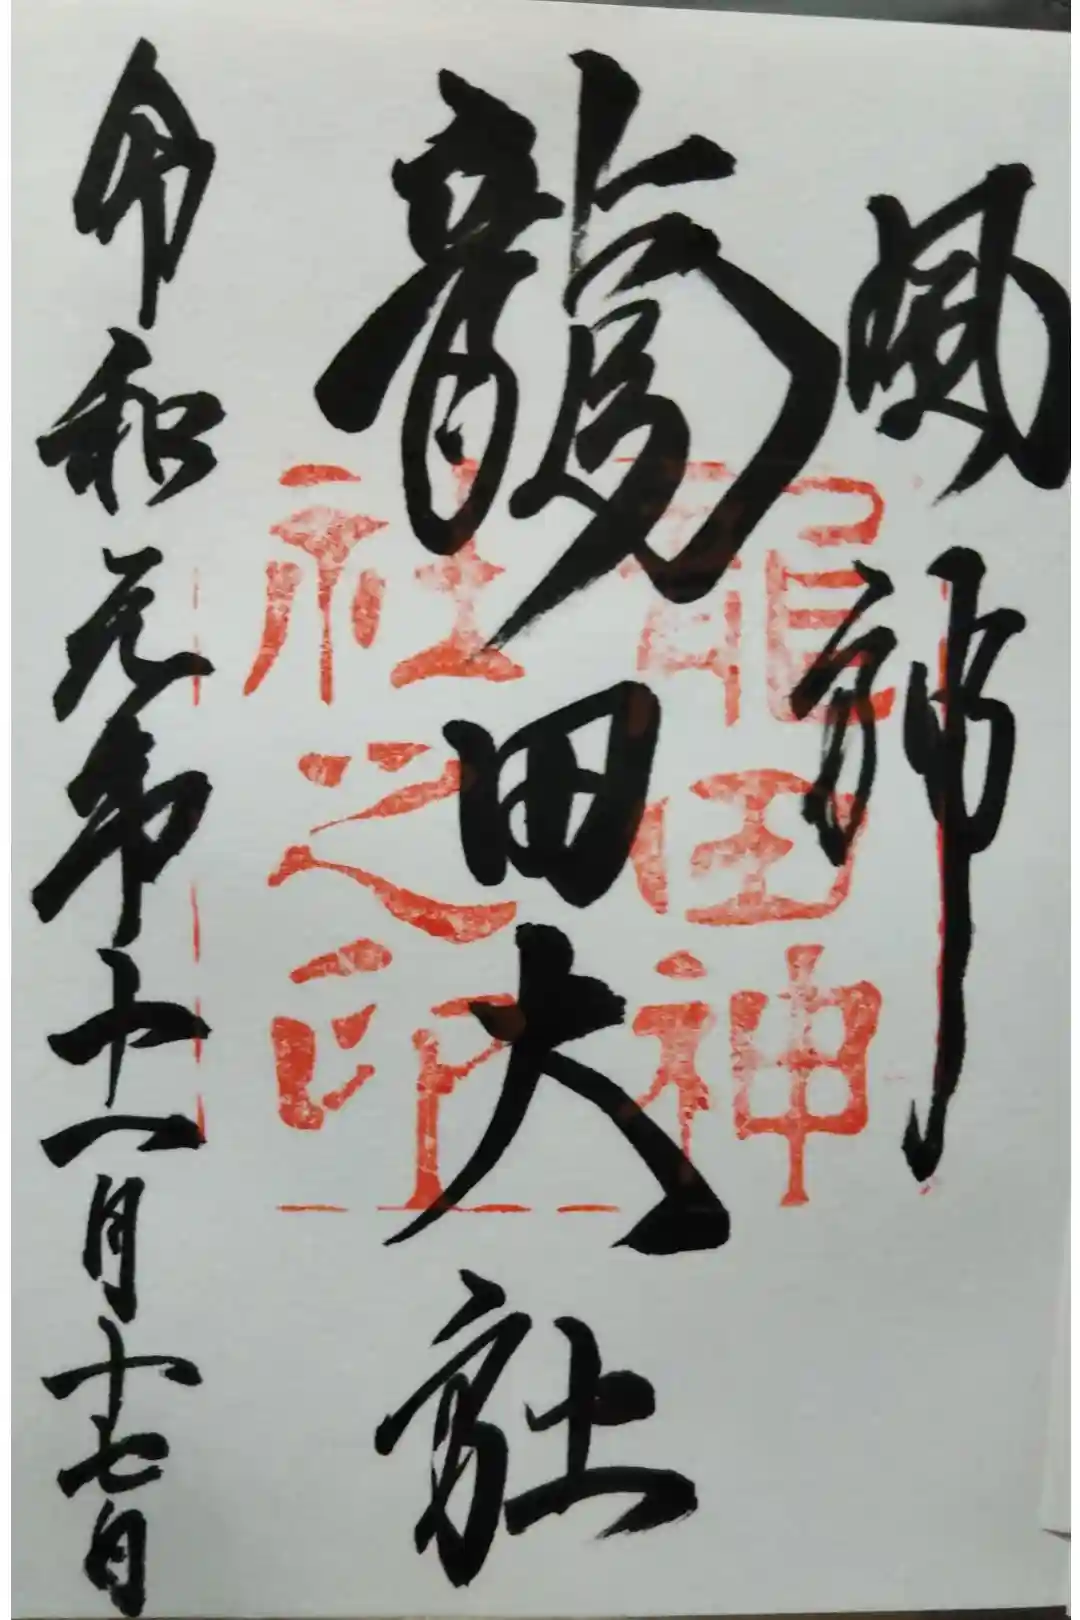 風神
龍田大社
龍田神
社之印
令和元年十一月十七日